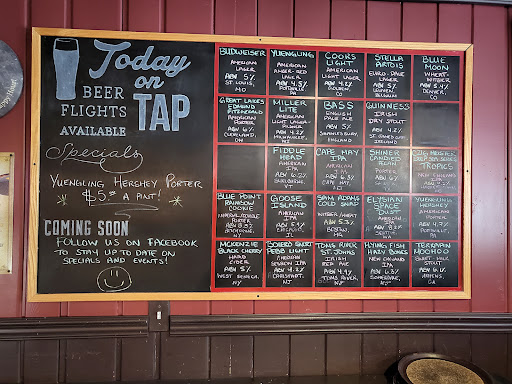 Today
on
TAP
BEER
FLIGHTS
AVAILABLE
Specials
YUENGLING HERSHEY PORTER
A PINT!
COMING SOON
FOLLOW US ON FACEBOOK
TO STAY UP TO DATE ON
SPECIALS AND EVENTS!
BUDWEISER
AMERICAN
LAGER
ABV 5%
ST. LOUIS,
MO
YUENGLING
AMERICAN
AMBER-RED
LAGER
PA
COORS
LIGHT
AMERICAN
LIGHT LAGER
ABV 4.2%
GOLDEN,
CO
STELLA
ARTOIS
EURO-PALE
LAGER
ABV 5%
BELGIUM
BLUE
MOON
WHEAT-
WITBIER
ABV 5.4%
DENVER,
CO
GREAT LAKES EDMUND
FITZGERALD
AMERICAN
PORTER
ABV 6%
CLEVELAND,
OH
MILLER
LITE
AMERICAN
LIGHT LAGER-
PILSNER
ABV 4.2%
WI
BASS
ENGLISH
PALE ALE
ABV 5%
GUINNESS
IRISH
DRY STOUT
ABV 4.2%
FIDDLE
HEAD
AMERICAN
IPA
ABV 6.2%
VT
CAPE MAY
IPA
AMERICAN
IPA
ABV 6.3%
CAPE MAY,
NJ
SHINER
CANDIED
PECAN
PORTER
TROPICS
NEW ENGLAND
BLUE POINT
RAINBOW
GOOSE
ISLAND
AMERICAN
IPA
ABV 5.9%
CHICAGO,
IL
SAM ADAMS
COLD SNAP
WITBIER/WHEAT
BOSTON,
MA
ELYSIAN
SPACE
DUST
AMERICAN
IPA
ABV 8.2%
SEATTLE,
WA
YUENGLING
HERSHEY
AMERICAN
PORTER
PA
MCKENZIE
BLACK CHERRY
HARD
CIDER
ABV 5%
WEST SENECA,
NY
AMERICAN
SESSION IPA
NJ
TOMS RIVER
ST. JOHNS
IRISH
RED ALE
TOMS RIVER,
NJ
FLYING FISH
HAZY BONES
NEW ENGLAND
IPA
SOMERDALE,
NJ
TERRAPIN
MOOHOO
MILK STOUT
ATHENS,
GA